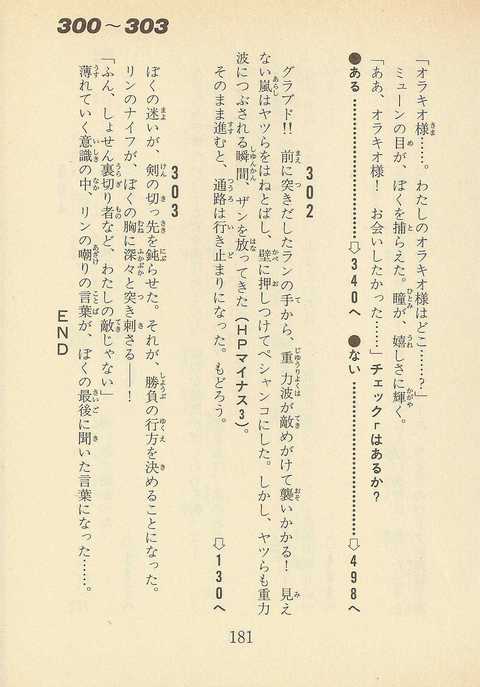 300〜303
「オラキオ様……。わたしのオラキオ様はどこ……?」
ミューンの目が、ぼくを捕らえた。瞳が、嬉しさに輝く。
「ああ、オラキオ様! お会いしたかった……」チェックrはあるか?
●ある……………………⇨340へ ●ない……………………⇨498へ
302
グラブド!! 前に突きだしたランの手から、重力波が敵めがけて襲いかかる! 見え
ない嵐はヤツらをはねとばし、壁に押しつけてペシャンコにした。しかし、ヤツらも重力
波につぶされる瞬間、ザンを放ってきた(HPマイナス3)。
そのまま進むと、通路は行き止まりになった。もどろう。
⇨130へ
303
ぼくの迷いが、剣の切っ先を鈍らせた。それが、勝負の行方を決めることになった。
リンのナイフが、ぼくの胸に深々と突き刺さる——!
「ふん、しょせん裏切り者など、わたしの敵じゃない」
薄れていく意識の中、リンの嘲りの言葉が、ぼくの最後に聞いた言葉になった……。
END
181